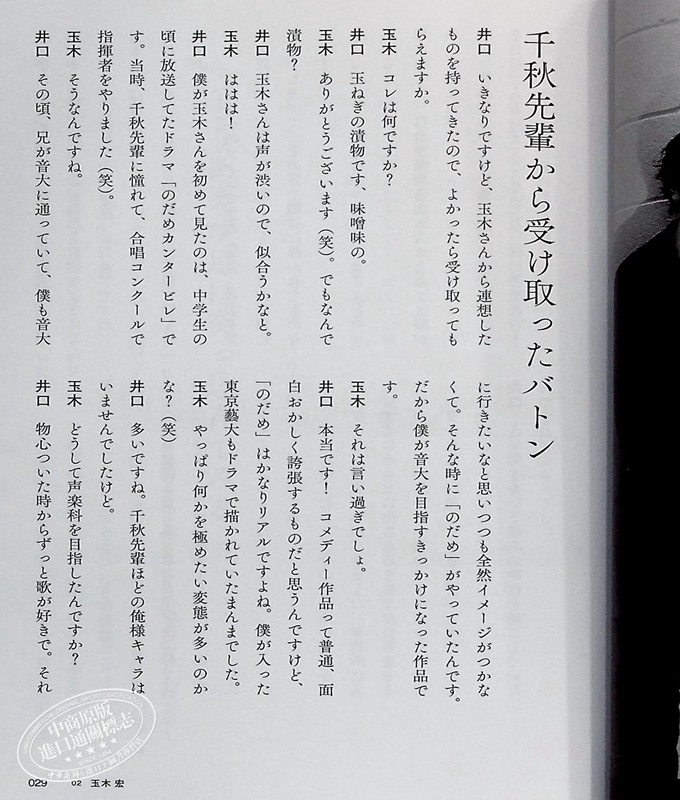 千秋先輩から受け取ったバトン
井口　いきなりですけど、玉木さんから連想した
ものを持ってきたので、よかったら受け取っても
らえますか。
玉木　コレは何ですか？
井口　玉ねぎの漬物です、味噌味の。
玉木　ありがとうございます（笑）。でもなんで
漬物？
井口　玉木さんは声が渋いので、似合うかなと。
玉木　ははは！
井口　僕が玉木さんを初めて見たのは、中学生の
頃に放送してたドラマ「のだめカンタービレ」で
す。当時、千秋先輩に憧れて、合唱コンクールで
指揮者をやりました（笑）。
玉木　そうなんですね。
井口　その頃、兄が音大に通っていて、僕も音大
に行きたいなと思いつつも全然イメージがつかな
くて。そんな時に「のだめ」がやっていたんです。
だから僕が音大を目指すきっかけになった作品で
す。
玉木　それは言い過ぎでしょ。
井口　本当です！　コメディー作品って普通、面
白おかしく誇張するものだと思うんですけど、
「のだめ」はかなりリアルですよね。僕が入った
東京藝大もドラマで描かれていたまんまでした。
玉木　やっぱり何かを極めたい変態が多いのか
な？（笑）
井口　多いですね。千秋先輩ほどの俺様キャラは
いませんでしたけど。
玉木　どうして声楽科を目指したんですか？
井口　物心ついた時からずっと歌が好きで。それ
029　02　玉木 宏
中商原版
進口通關標志